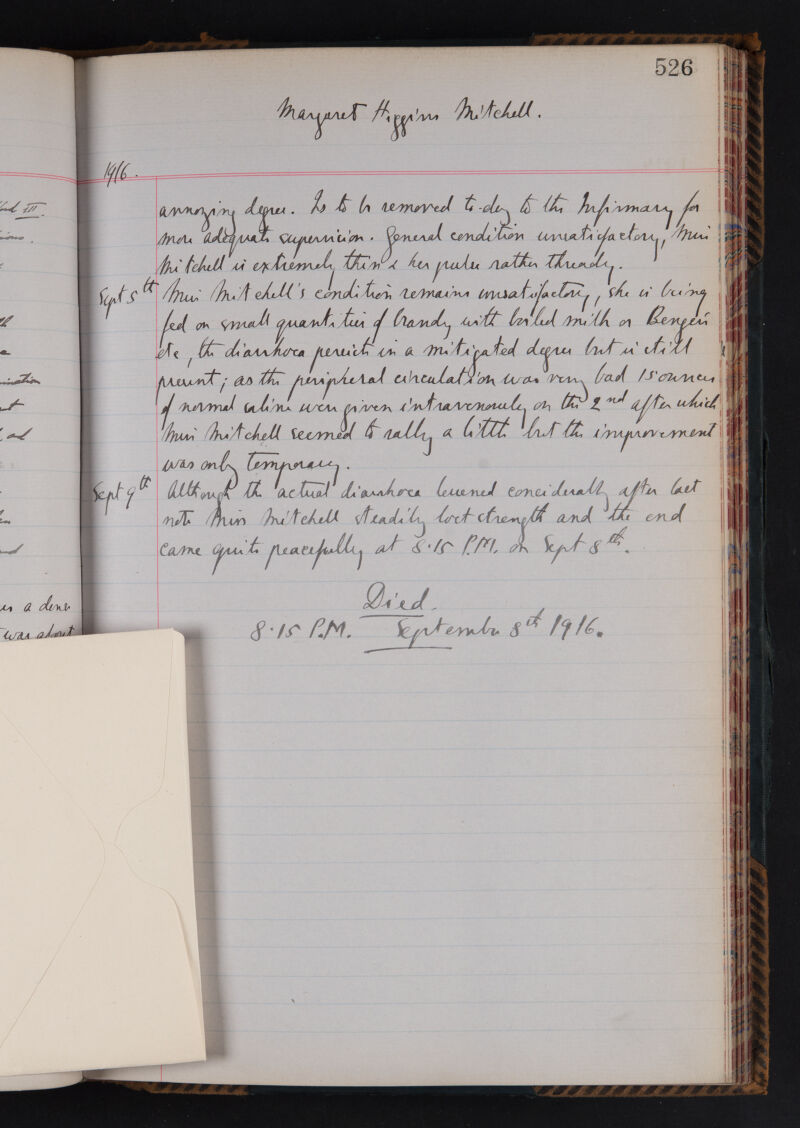 526
Margaret Higgins Mitchell.
1916.
annoying degree. Is to be removed to-day to the Infirmary for
more adequate supervision. General condition unsatisfactory, Miss
Mitchell is extremely thin & her pulse rather thready.
Sept 5th Miss Mitchell's condition remains unsatisfactory, she is being
fed on small quantities of brandy with boiled milk or Benger's
etc, the diarrhoea persists in a mitigated degree but is still
present; as the peripheral circulation was very bad 15 ounces
of normal saline were given intravenously on the 2nd after which
Miss Mitchell seemed to rally a little but the improvement
was only temporary.
Sept 9th Although the actual diarrhoea lessened considerably after last
note Miss Mitchell steadily lost strength and the end
came quite peacefully at 8.15 P.M. on Sept 8th.
Died.
8.15 P.M. September 8th 1916.
III.
was about